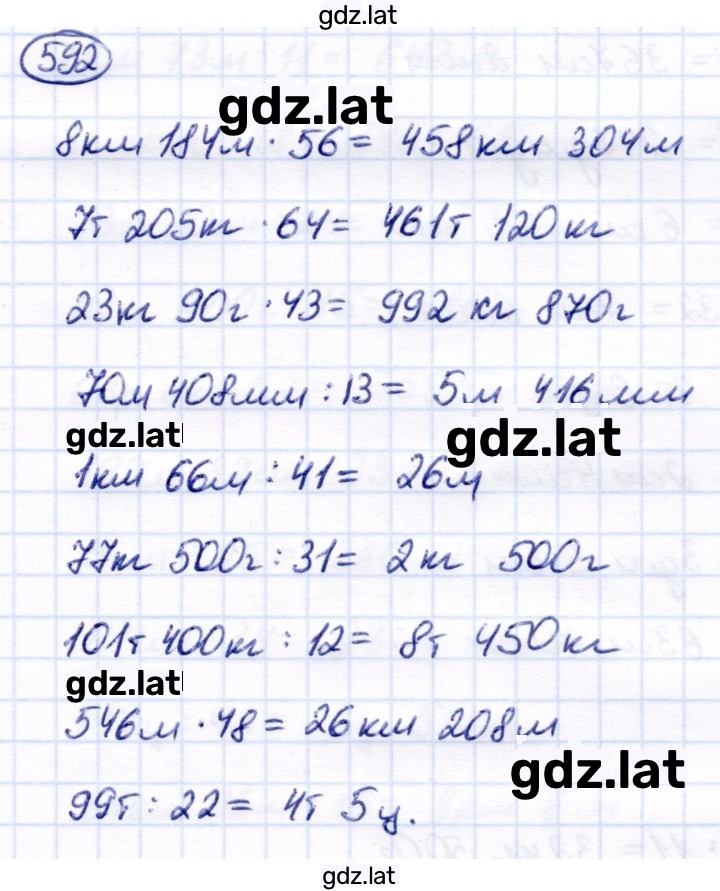 gdz.lat
592
gdz.lat
8км 184м · 56 = 458км 304м
7т 205кг · 64 = 461т 120кг
23кг 90г · 43 = 992 кг 870г
70м 408мм : 13 = 5м 416мм
gdz.lat
gdz.lat
1км 66м : 41 = 26м
77кг 500г : 31 = 2кг 500г
101т 400кг : 12 = 8т 450кг
gdz.lat
546м · 48 = 26км 208м
gdz.lat
99т : 22 = 4т 5ц.
gdz.lat